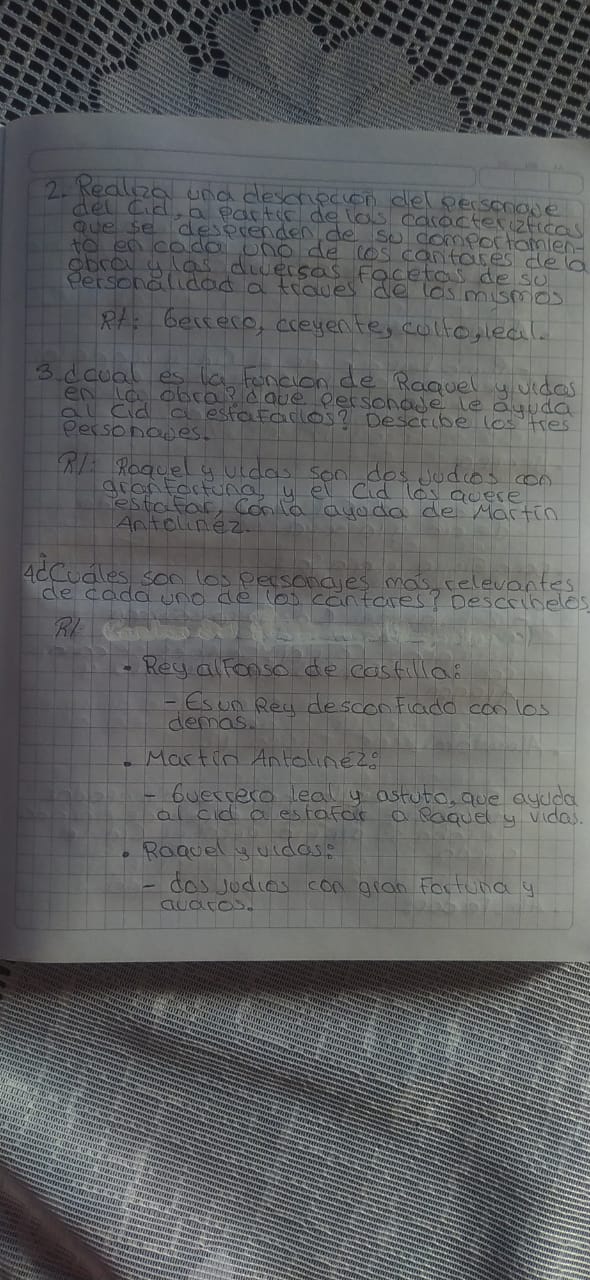 2. Realiza una descripcion del personaje
del Cid, a partir de las caracterízticas
que se desprenden de su comportamien-
to en cada uno de los cantares de la
obra y las diversas facetas de su
Personalidad a traves de los mismos
R/: Gerrero, creyente, culto, leal.
3. ¿cual es la Función de Raquel y vidas
en la obra? ¿que personaje le ayuda
al Cid a estafarlos? Describe los tres
Personajes.
R/: Raquel y vidas son dos judios con
gran fortuna, y el Cid los quere
estafar, con la ayuda de Martín
Antolinéz.
4 ¿Cuáles son los personajes más relevantes
de cada uno de los cantares? Describelos
R/:
• Rey alFonso de castilla:
- Es un Rey desconfiado con los
demas.
• Martín Antolinéz:
- Guerrero leal y astuto, que ayuda
al cid a estafar a Raquel y vidas.
• Raquel y vidas:
- dos judios con gran Fortuna y
avaros.